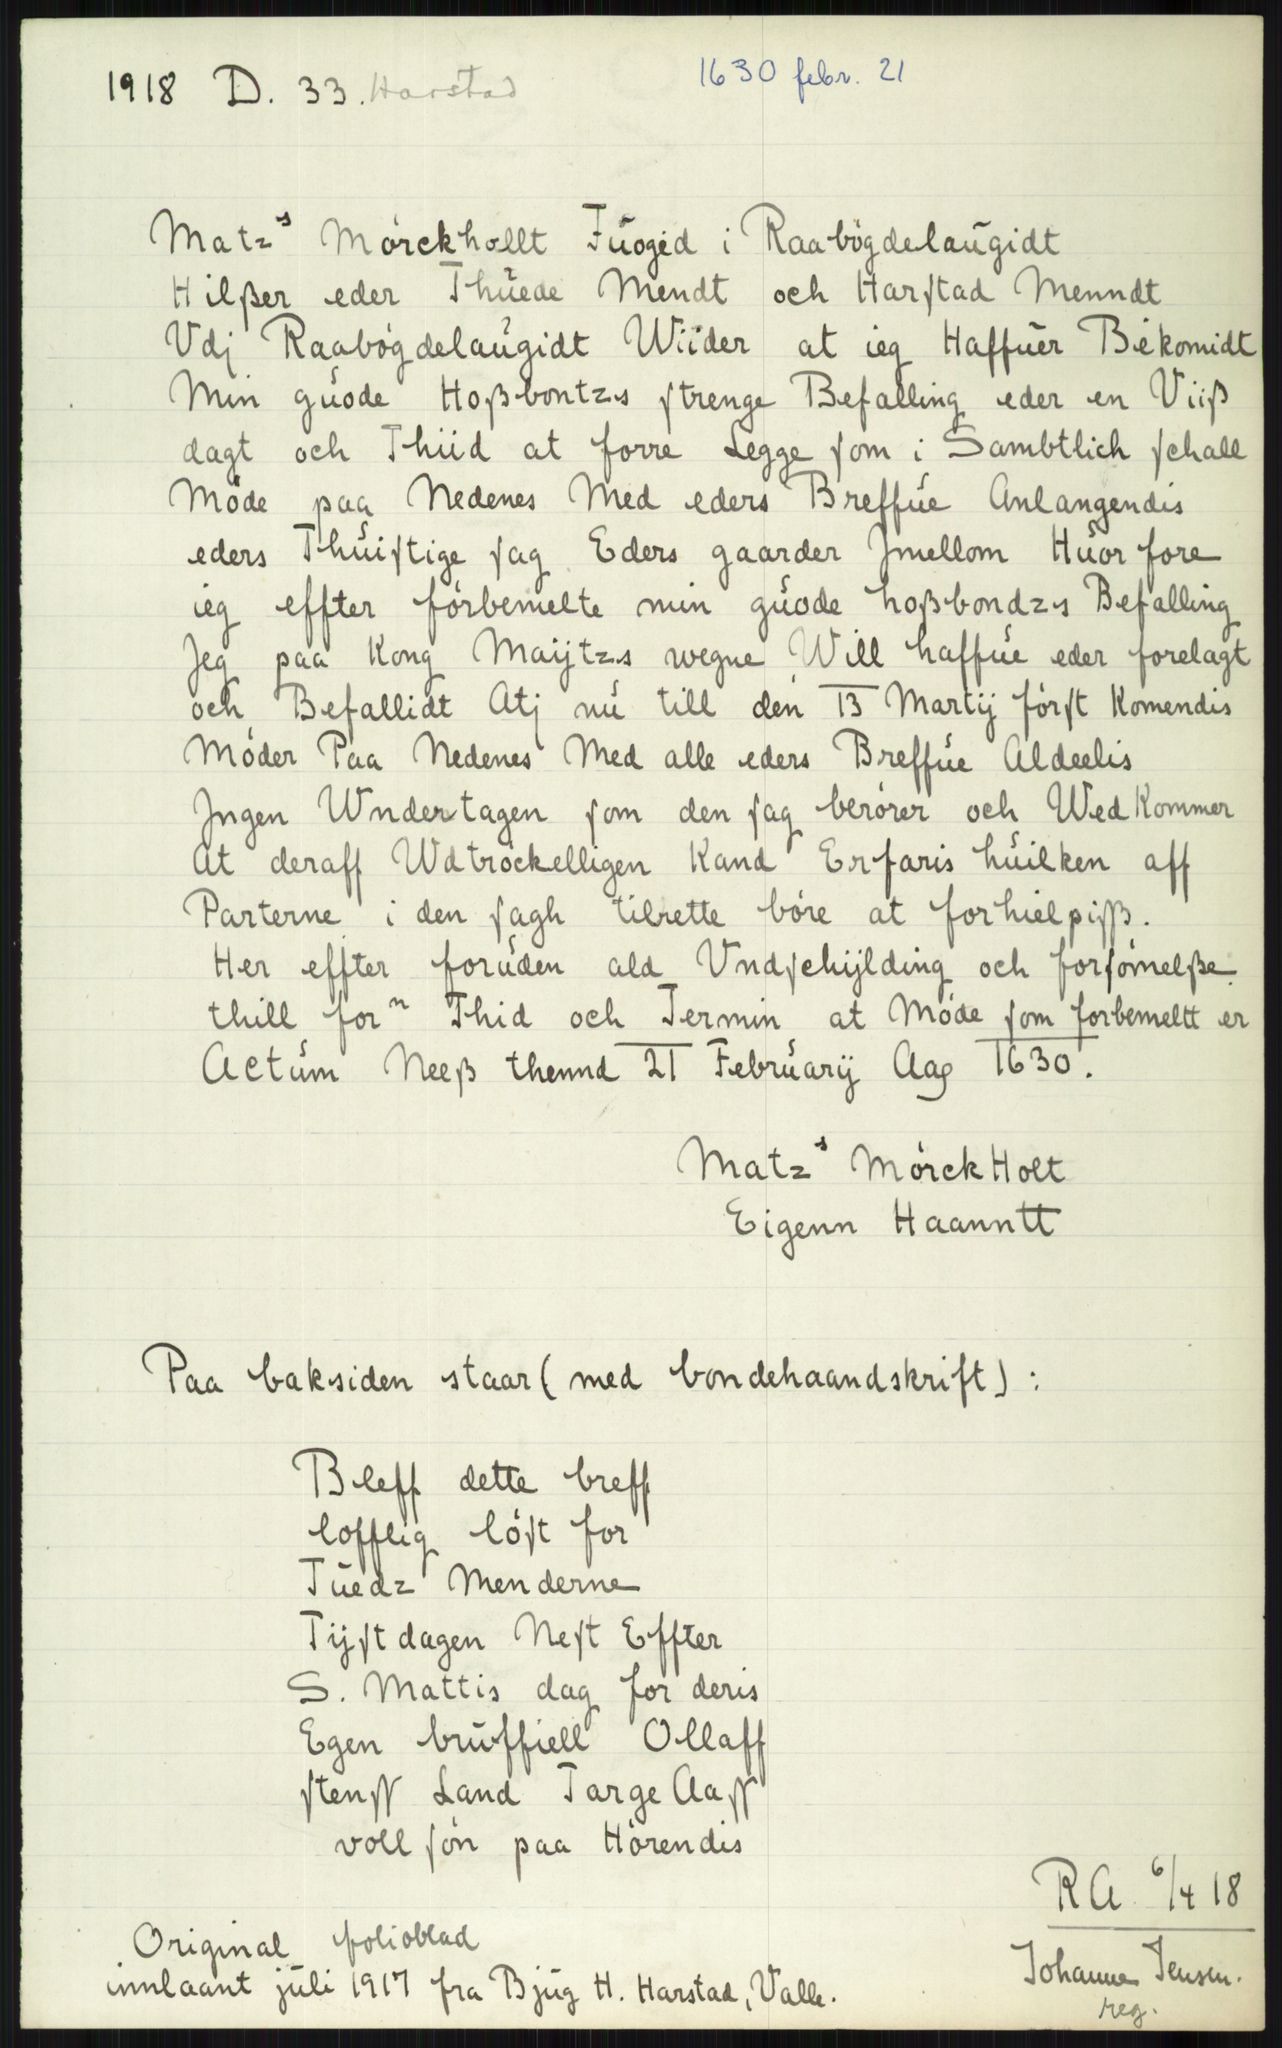 1918 D. 33. Harstad
1630 febr. 21
Matzˢ Mórckhollt Fŭogid i Raabógdelaŭgidt
Hilßer eder Thŭede Mendt och Harſtad Menndt
Vdj Raabógdelaŭgidt Wiider at ieg Haffŭer Bekomidt
Min gŭode Hoßbontzs ſtrenge Befalling eder en Viiß
dagt och Thiid at forre Legge ſom i Sambtlich ſchall
Móde paa Nedenes Med eders Breffŭe Anlangendis
eders Thŭiſtige ſag Eders gaarder Jmellom Hŭor fore
ieg effter fórbemelte min gŭode hoßbondzs Befalling
Jeg paa Kong Maijtzs wegne Will haffŭe eder forelagt
och Befallidt Atj nŭ till den 13 Martij fórſt Komendis
Móder Paa Nedenes Med alle eders Breffŭe Aldeelis
Jngen Wndertagen ſom den ſag berórer och Wed Kommer
At deraff Wdtróckelligen Kand Erfaris hŭilken aff
Parterne i den ſagh tilrette bóre at forhielpiſſ.
Her effter forŭden ald Vndſchijlding och forſómelße
thill forⁿ Thid och Termin at Móde ſom forbemeltt er
Actŭm Neeß thennd 21 Febrŭarij Aag 1630.
Matzˢ MórckHolt
Eigenn Haanntt
Paa baksiden staar (med bondehaandskrift) :
Bleff dette breff
lofflig lóſt for
Tŭedz Menderne
Tijſtdagen Neſt Effter
S. Mattis dag for deris
Egen brŭffiell Ollaff
ſtenſſ Land Targe Aaſſ
voll ſón paa Hórendis
RA 6/4 18
Original folioblad
Johanne Jensen.
innlaant jŭli 1917 fra Bjŭg H. Harstad, Valle.
reg.